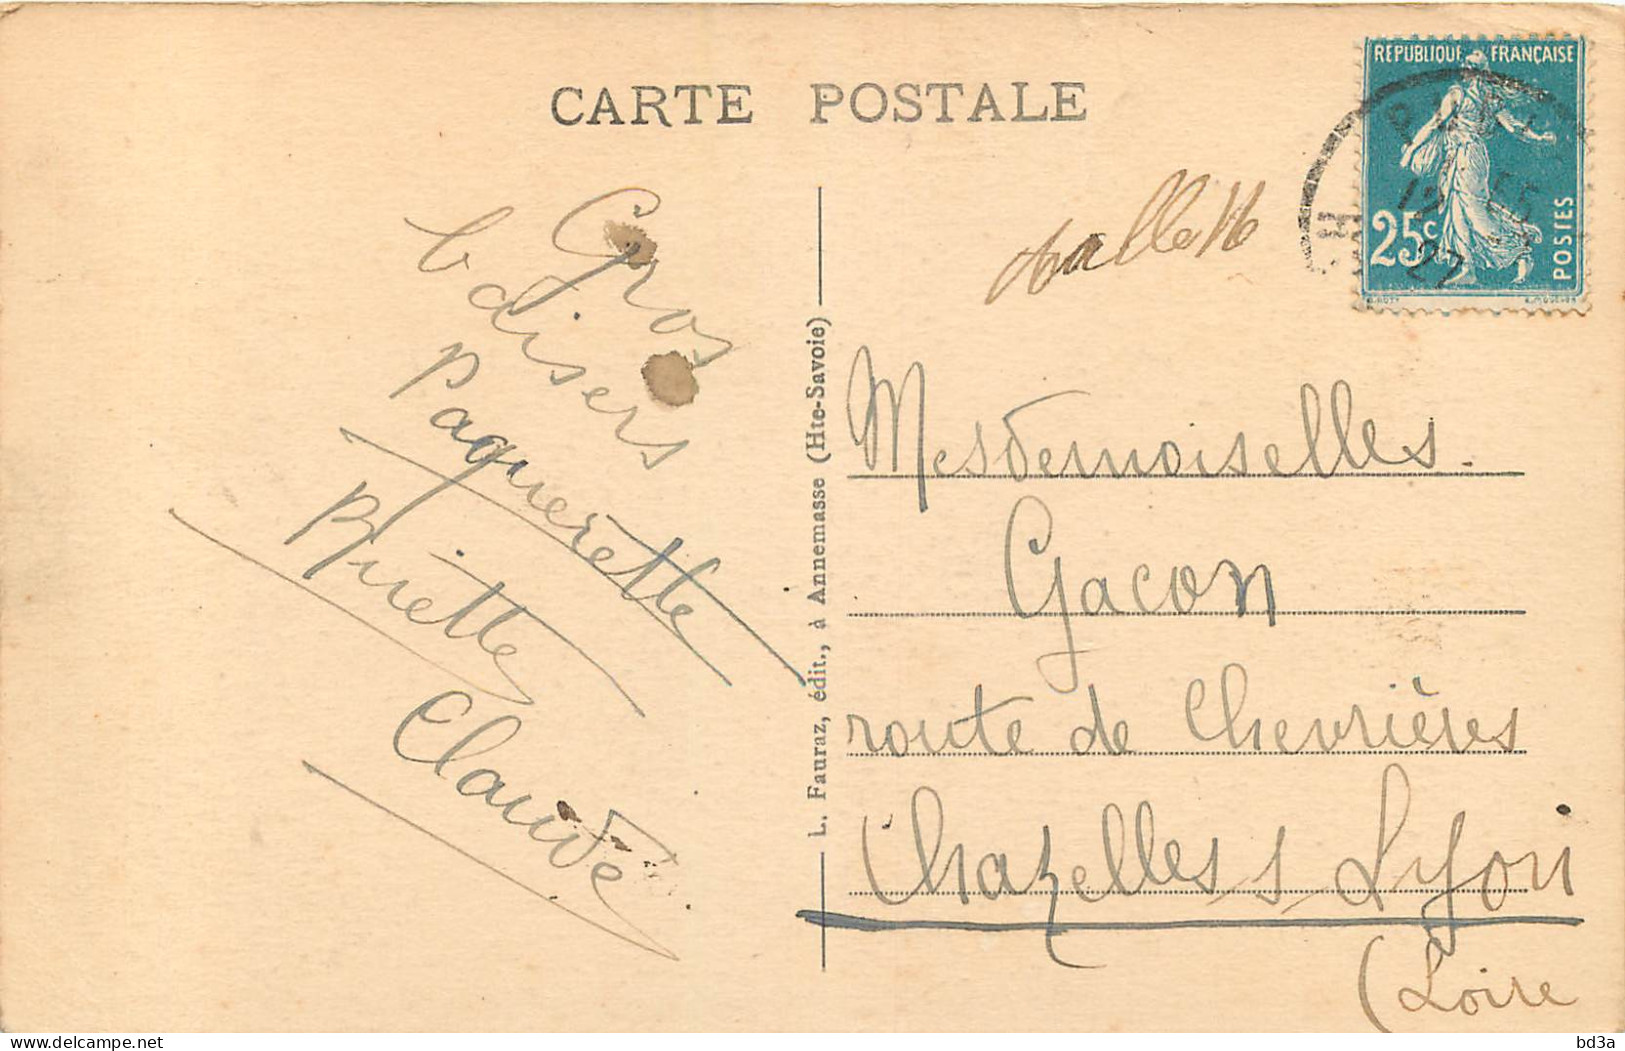 CARTE POSTALE
REPUBLIQUE FRANÇAISE
25c
POSTES
12
27
Gros
baisers
Paquerette
Claude
L. Fauraz, édit., à Annemasse (Hte-Savoie)
Mesdemoiselles
Gacon
route de Chevrières
Chazelles s Lyon
(Loire
bd3a